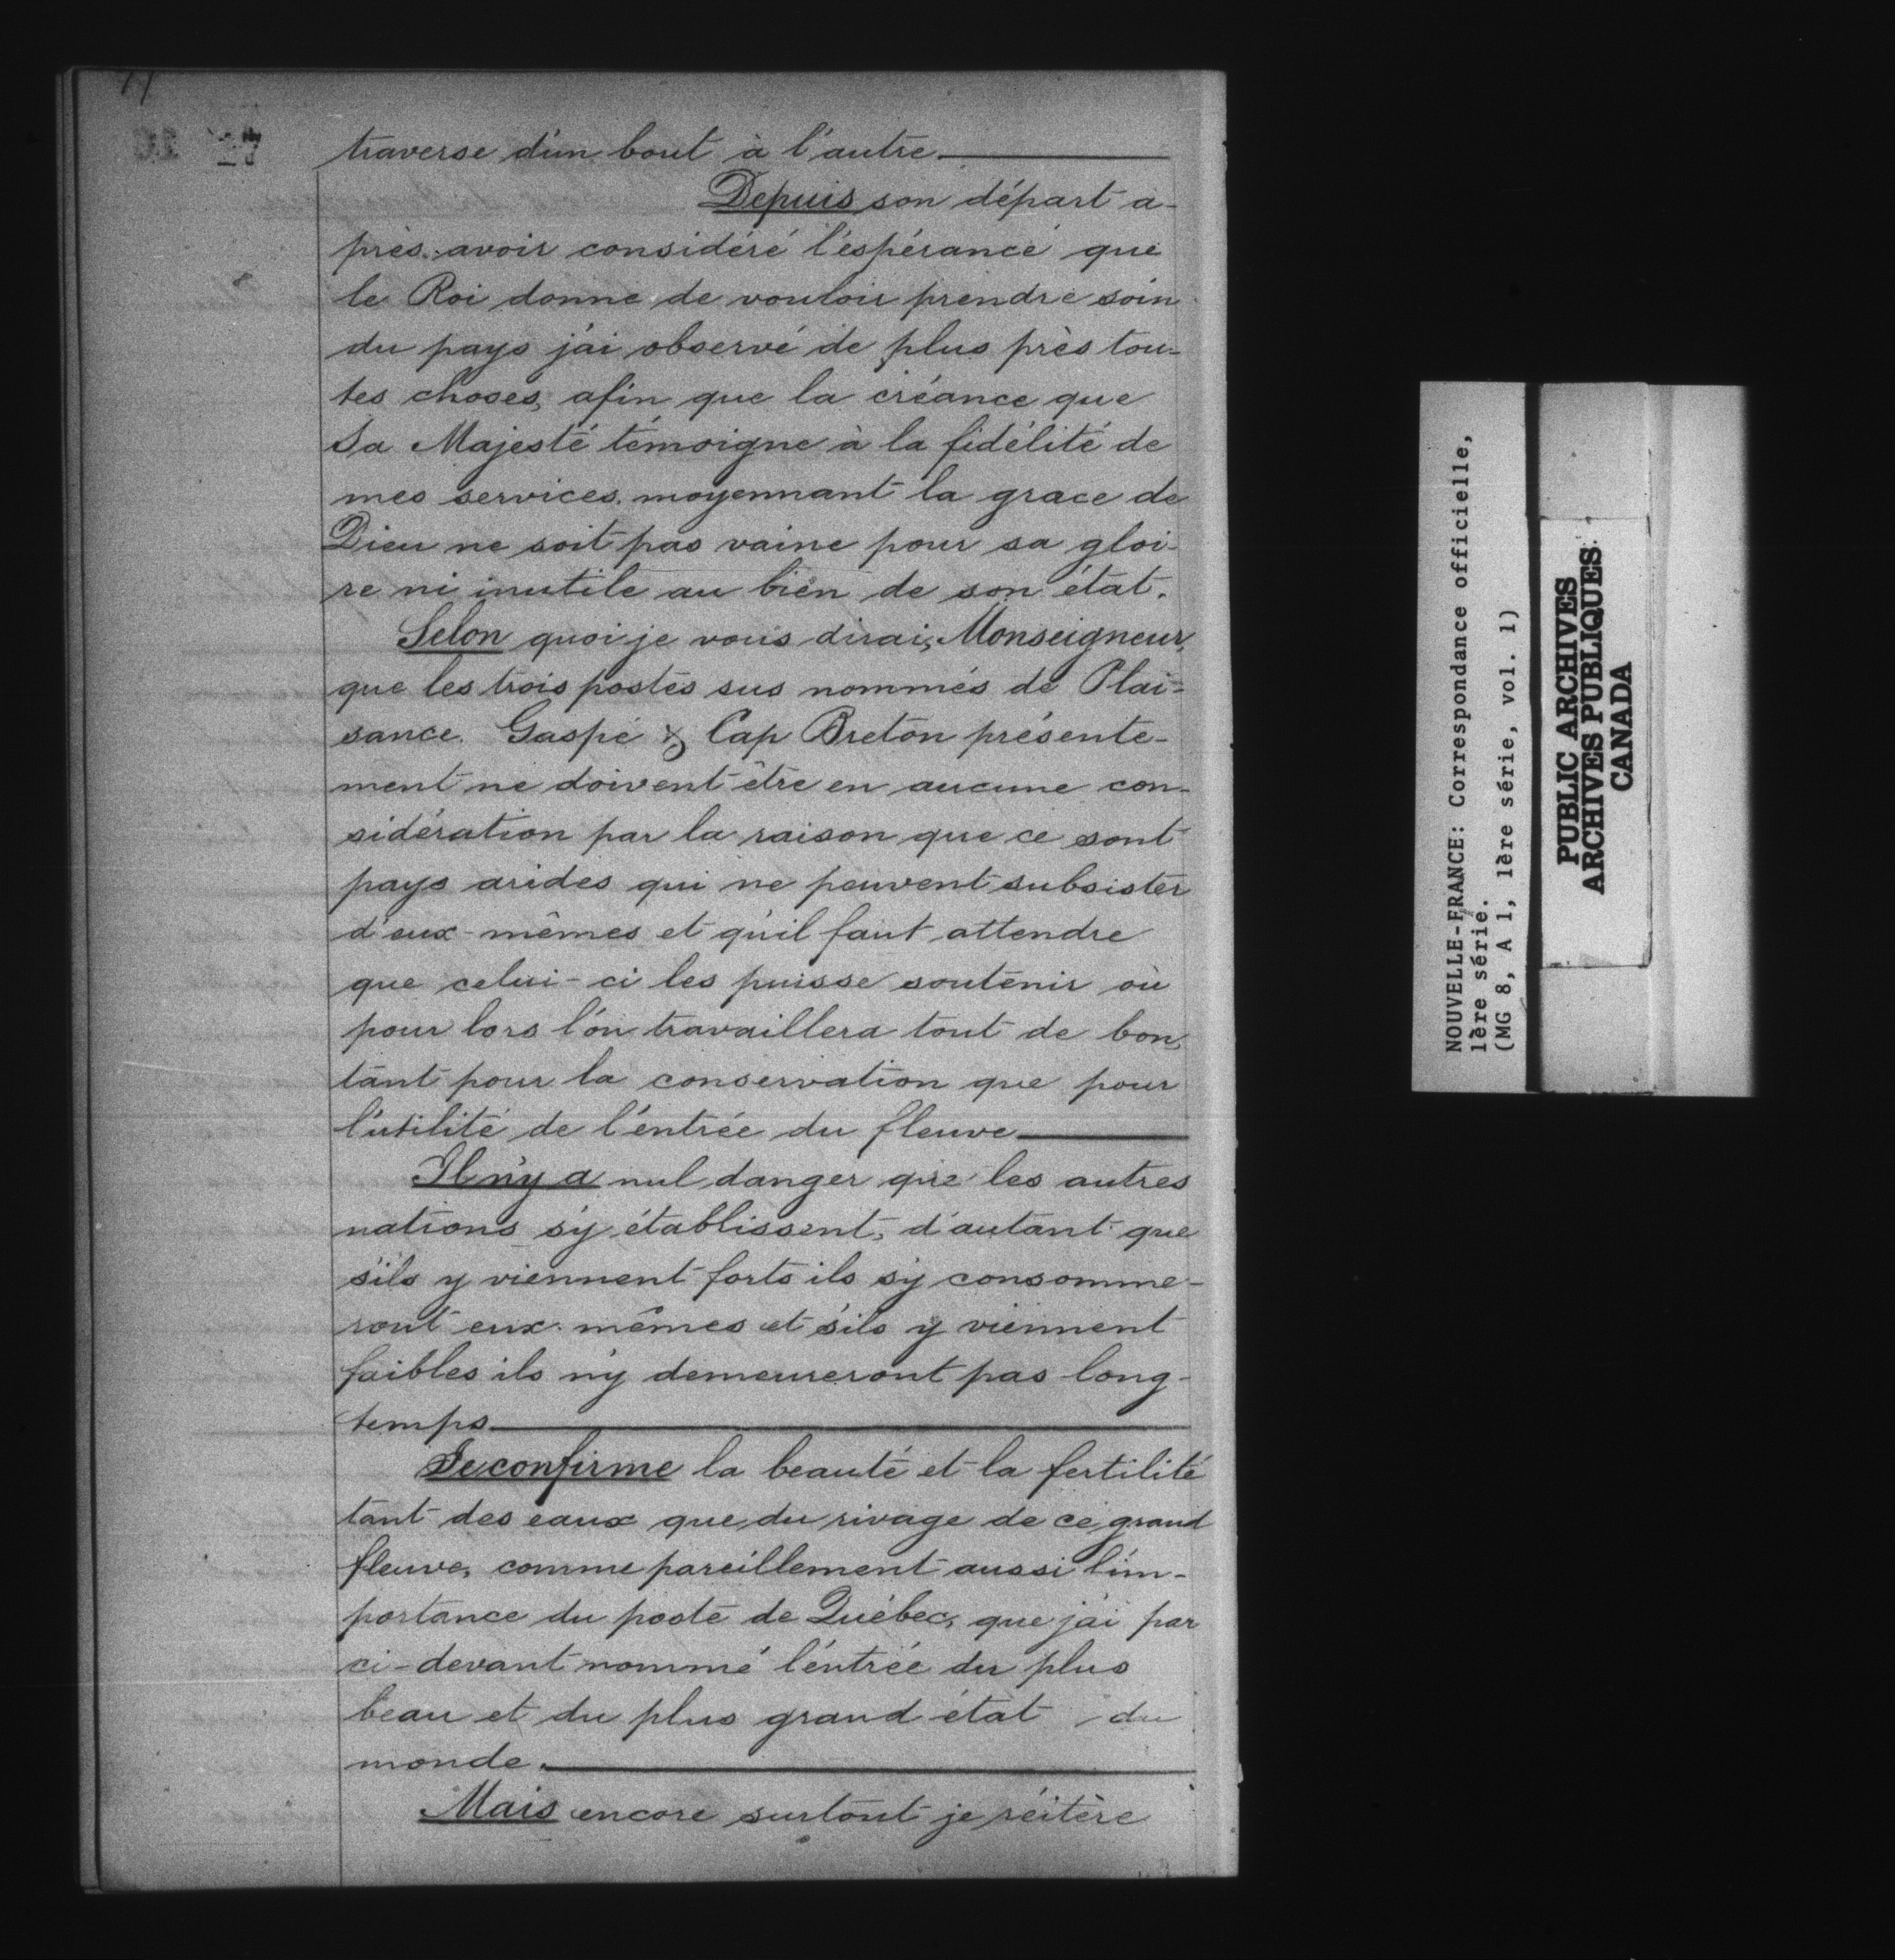 traverse d'un bout à l'autre
Depuis son départ a-
près avoir considéré l'espérance que
le Roi donne de vouloir prendre soin
du pays j'ai observé de plus près tou-
tes choses, afin que la créance que
Sa Majesté témoigne à la fidélité de
mes services, moyennant la grace de
Dieu ne soit pas vaine pour sa gloi-
re ni inutile au bien de son état.
Selon quoi je vous dirai, Monseigneur,
que les trois postes sus nommés de Plai-
sance. Gaspé & Cap Breton présente-
ment ne doivent être en aucune con-
sidération par la raison que ce sont
pays arides qui ne peuvent subsister
d'eux-mêmes et qu'il faut attendre
que celui-ci les puisse soutenir où
pour lors l'on travaillera tout de bon,
tant pour la conservation que pour
l'utilité de l'entrée du fleuve
Il n'y a nul danger que les autres
nations s'y établissent, d'autant que
s'ils y viennent forts ils s'y consomme-
ront eux-mêmes et s'ils y viennent
faibles ils n'y demeureront pas long-
temps
Je confirme la beauté et la fertilité
tant des eaux que du rivage de ce grand
fleuve, comme pareillement aussi l'im-
portance du poste de Québec, que j'ai par
ci-devant nommé l'entrée du plus
beau et du plus grand état du
monde.
Mais encore surtout je réitère
NOUVELLE-FRANCE: Correspondance officielle,
1ère série.
(MG 8, A 1, 1ère série, vol. 1)
PUBLIC ARCHIVES
ARCHIVES PUBLIQUES
CANADA